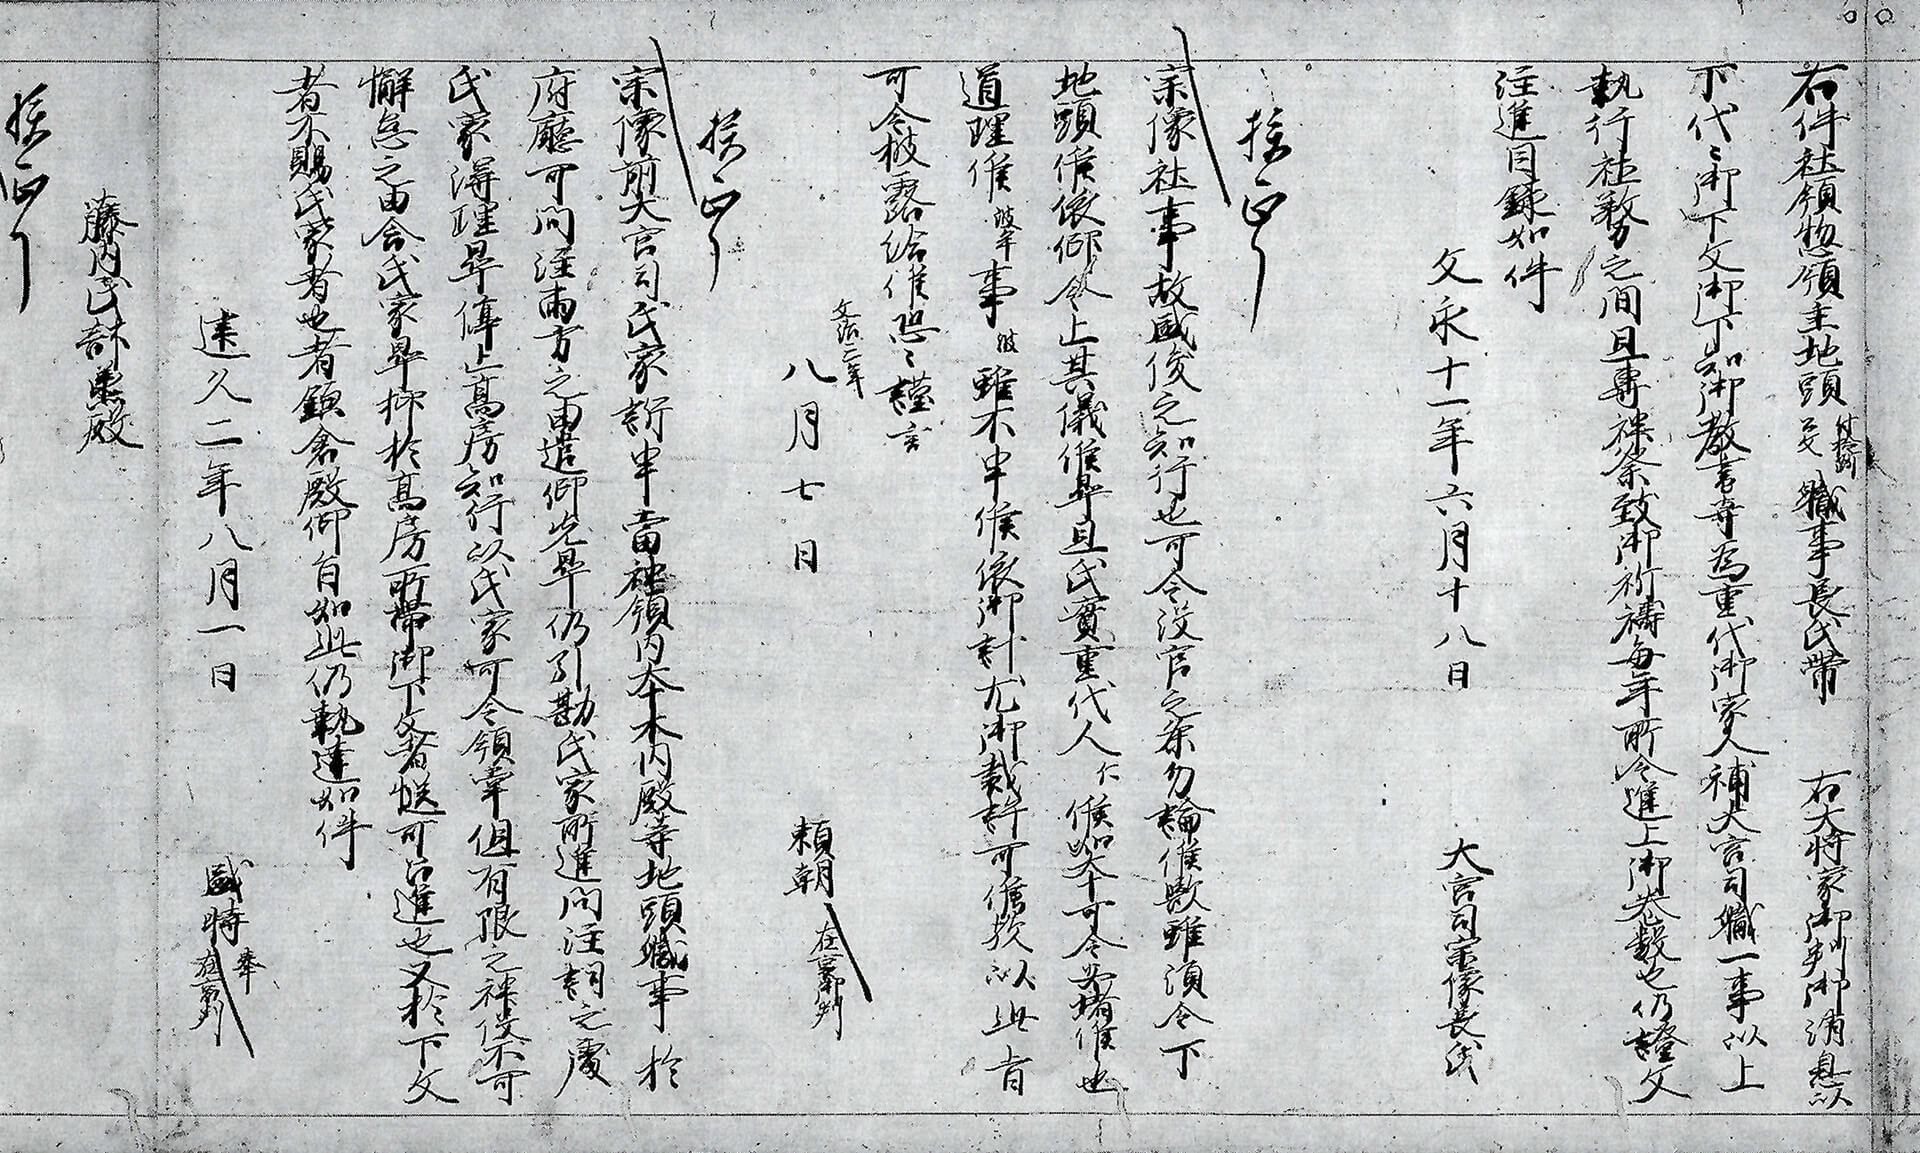 右件社領惣領主地頭付検断公文職事長氏帯 右大将家御判御消息以
下代〻御下文御下知御教書等為重代御家人補大宮司職一事以上
執行社務之間且専神祭致御祈禱毎年所令進上御巻数也仍證文
注進目録如件
文永十一年六月十八日 大宮司宗像長氏
校正了
宗像社事故盛俊之知行也可令没官之条勿論候歟雖須令下
地頭候依仰令止其儀候畢且氏實重代人仁候如本可令安堵候也
道理候事雖不申候依御計尤御裁許可候歟以此旨
可令披露給候恐〻謹言
文治二年
八月七日 頼朝在御判
校正了
宗像前大宮司氏家訴申當社領内本木内殿等地頭職事於
府廳可問注両方之由遣仰先畢仍引勘氏家所進問注詞之處
氏家得理畢停止高房知行以氏家可令領掌但有限之神役不可
懈怠之由含氏家畢抑於高房所帯御下文者慥可召進也又於下文
者不賜氏家者也者鎌倉殿仰旨如此仍執達如件
建久二年八月一日 盛時奉在判
藤内民部丞殿
校正了